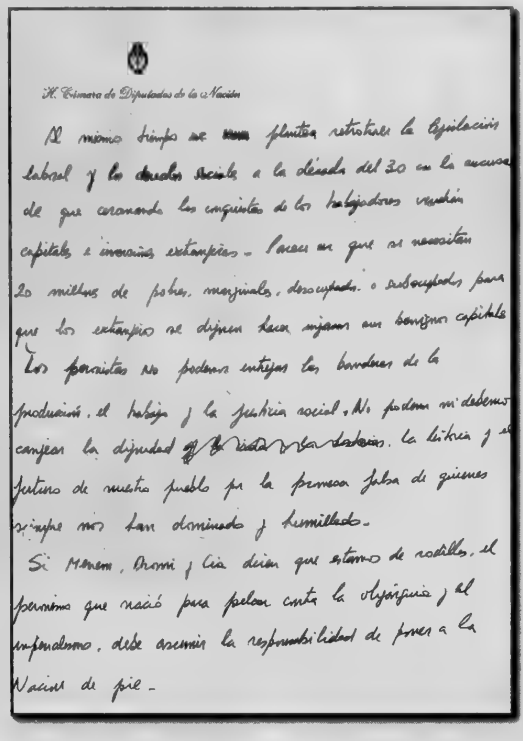 H. Cámara de Diputados de la Nación
Al mismo tiempo se plantea retrotraer la legislación
laboral y los derechos sociales a la década del 30 con la excusa
de que cercenando las conquistas de los trabajadores vendrán
capitales e inversiones extranjeras - Parece ser que se necesitan
20 millones de pobres, marginales, desocupados o subocupados para
que los extranjeros se dignen hacer sus benignos capitales
Los peronistas no podemos entregar las banderas de la
producción, el trabajo y la justicia social. No podemos ni debemos
canjear la dignidad la historia y el
futuro de nuestro pueblo por la promesa falsa de quienes
siempre nos han dominado y humillado -
Si Menem, Dromi y Cia dicen que estamos de rodillas, el
peronismo que nació para pelear contra la oligarquía y el
imperialismo, debe asumir la responsabilidad de poner a la
Nación de pie -